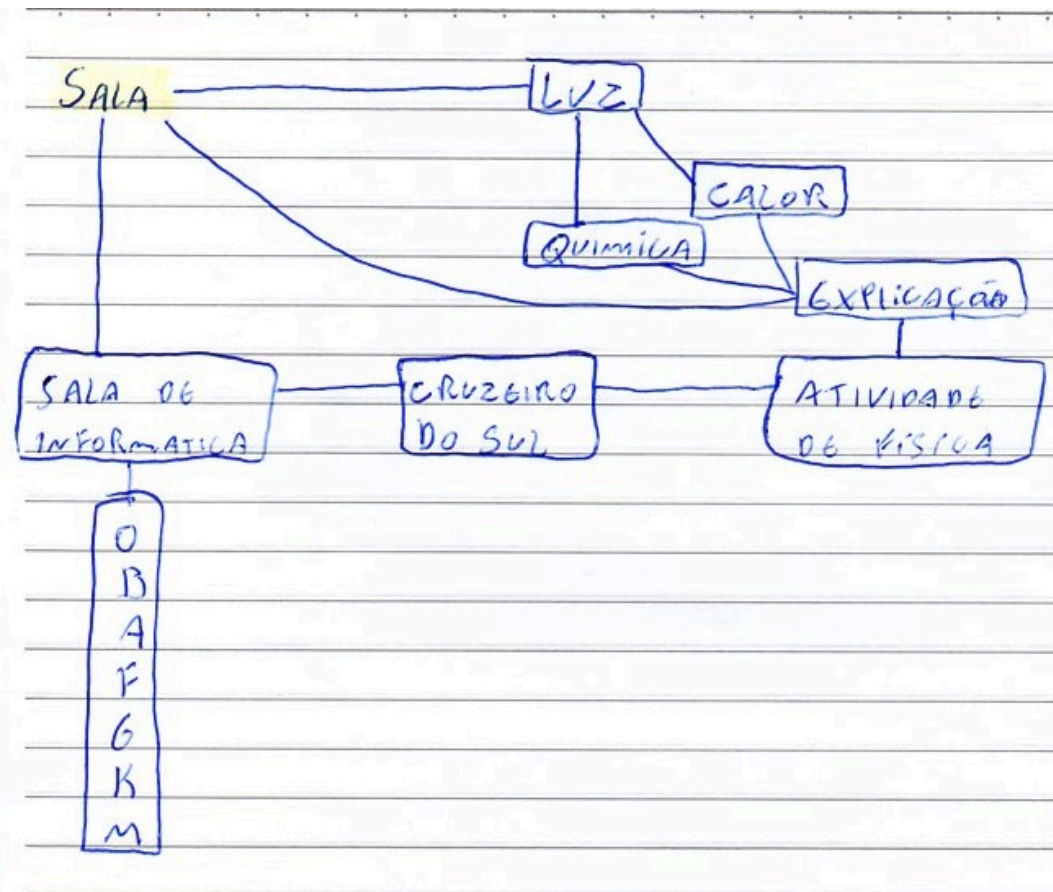 SALA
LUZ
CALOR
QUIMICA
EXPLICAÇÃO
SALA DE
INFORMATICA
CRUZEIRO
DO SUL
ATIVIDADE
DE FÍSICA
O
B
A
F
G
K
M